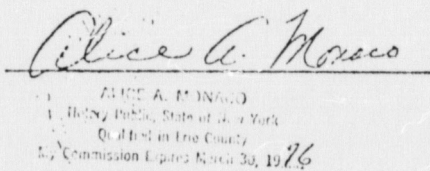 Alice A. Monaco
ALICE A. MONACO
Notary Public, State of New York
Qualified in Erie County
My Commission Expires March 30, 1976